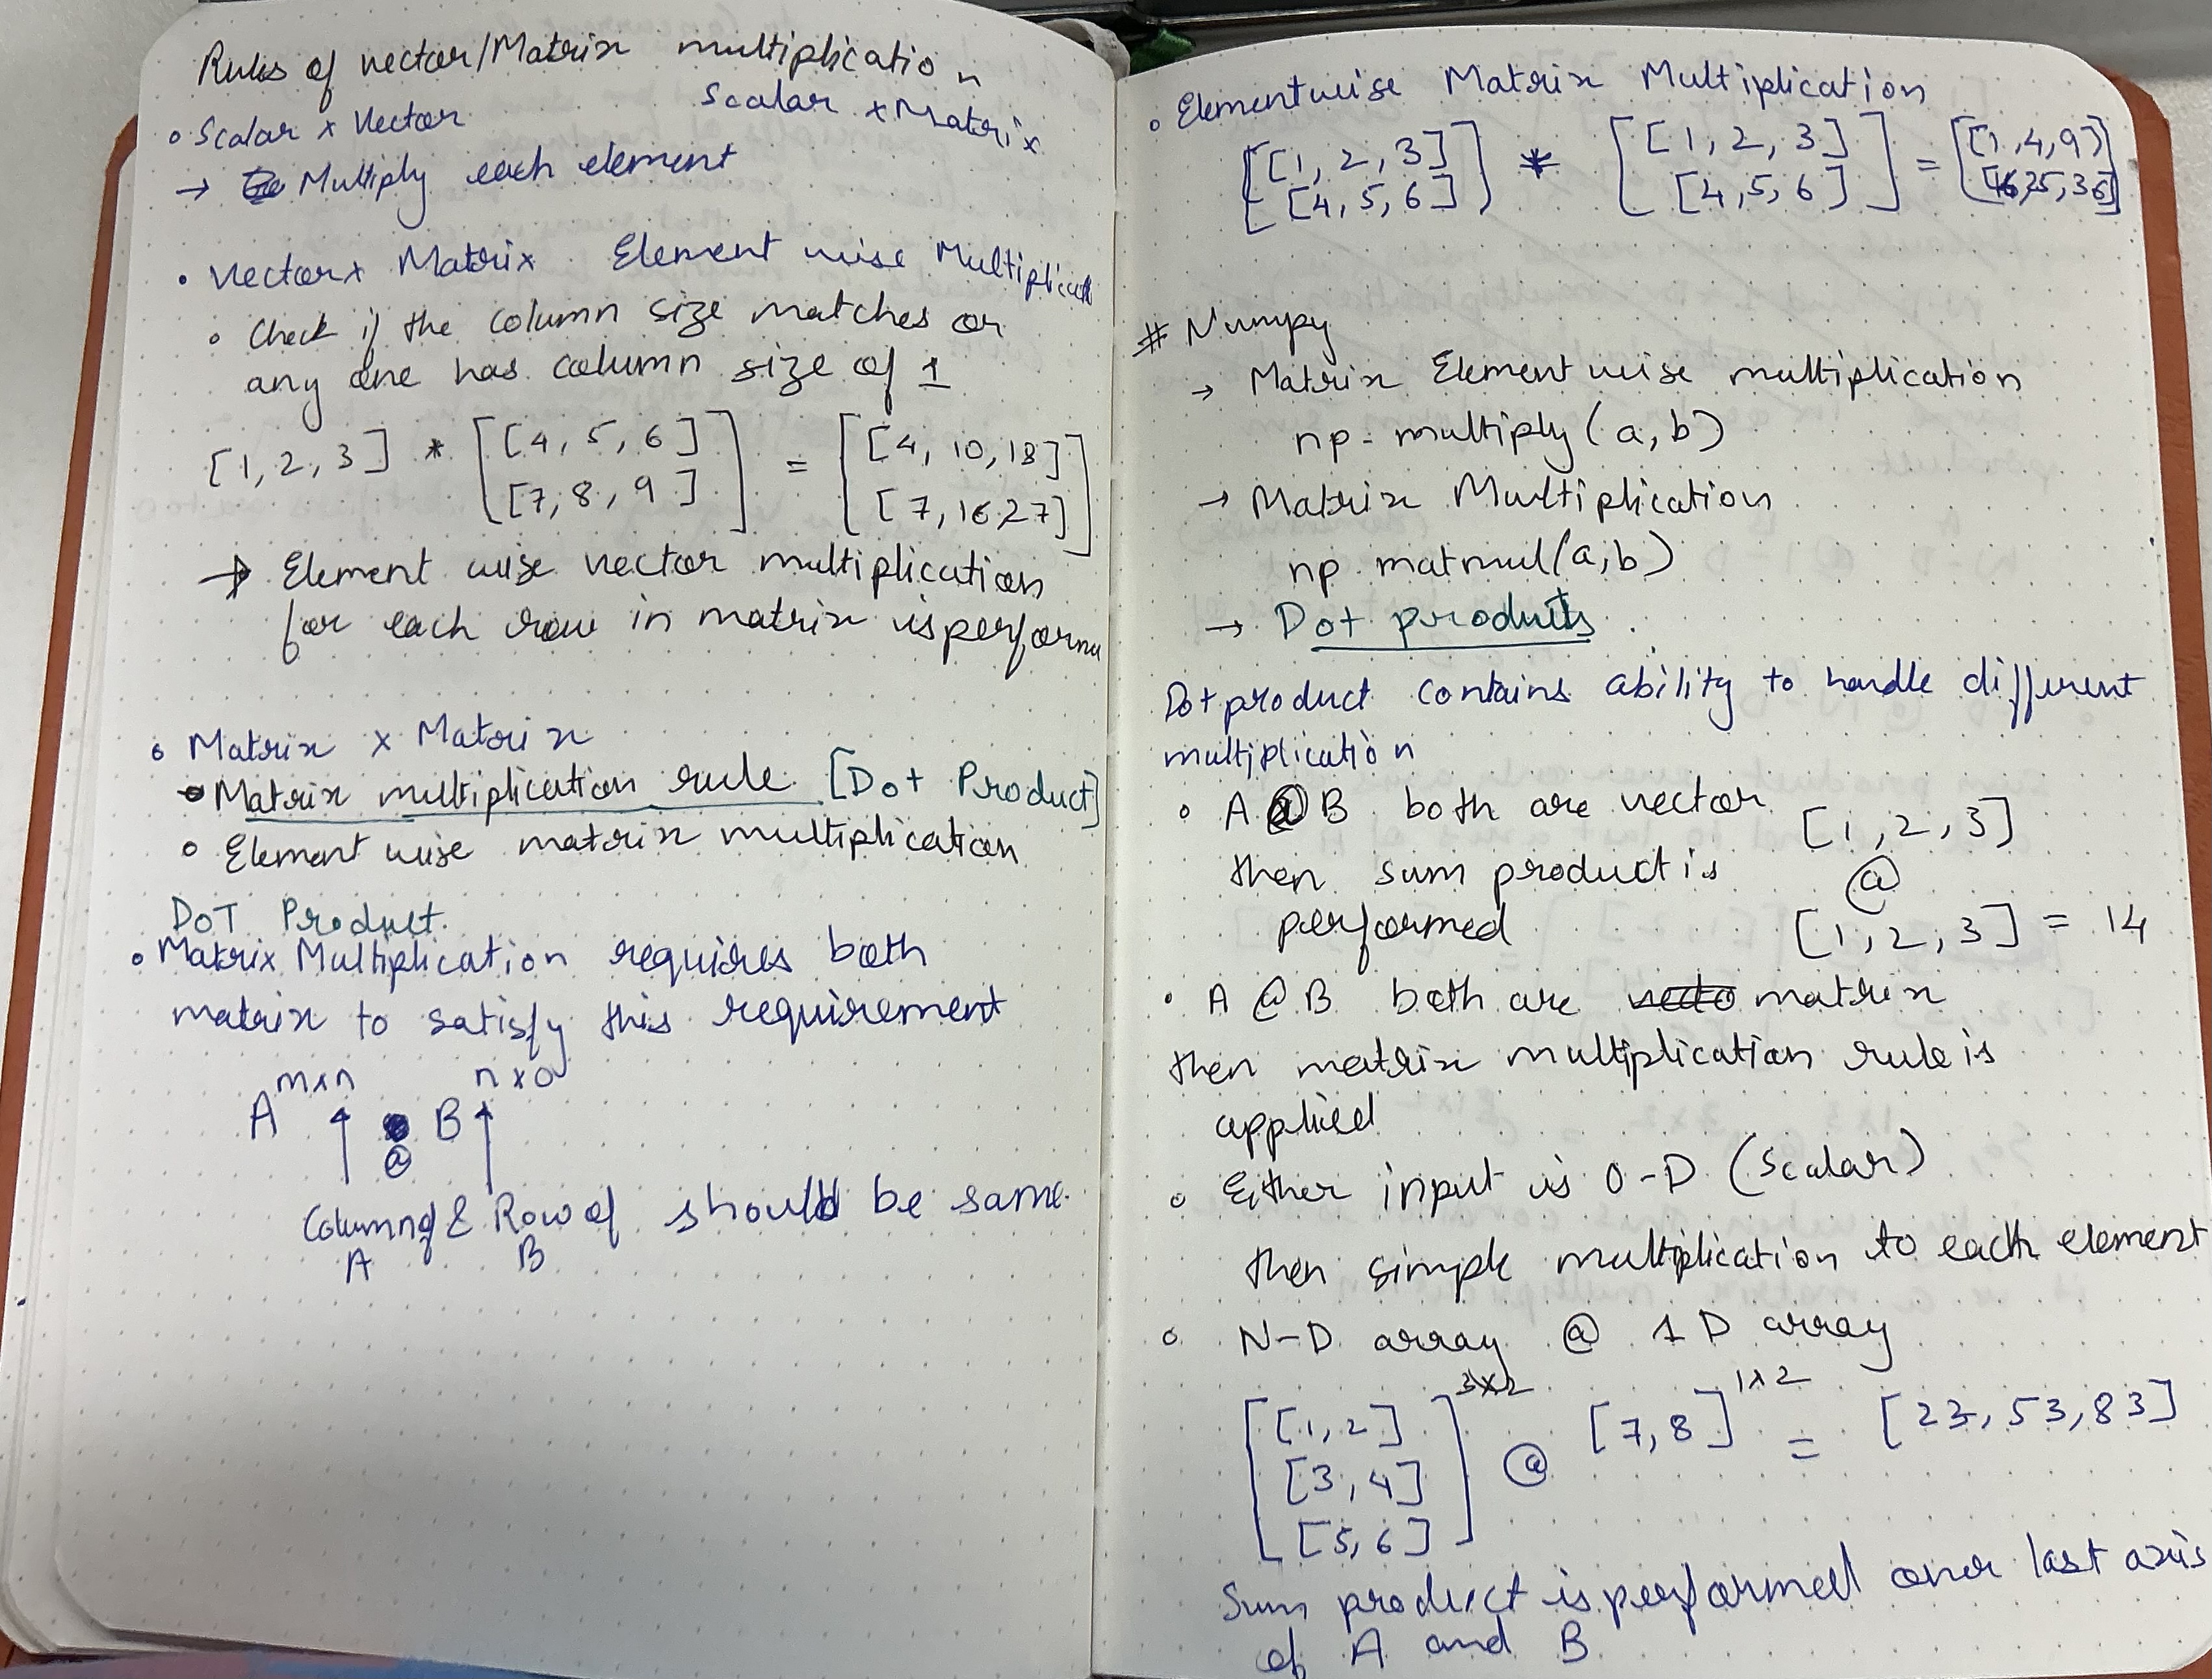 Rules of vector/Matrix multiplication
Scalar x Vector Scalar x Matrix
→ Multiply each element
• Vector x Matrix Element wise Multiplicati
◦ Check if the column size matches or
any one has column size of 1
[1, 2, 3] * [[4, 5, 6] = [[4, 10, 18]
[7, 8, 9]] [7, 16 27]]
→ Element wise vector multiplication
for each row in matrix is perform
◦ Matrix x Matrix
Matrix multiplication rule [Dot Product]
◦ Element wise matrix multiplication
DOT Product.
• Matrix Multiplication requires both
matrix to satisfy this requirement
m×n n×o
A B
@
Column of & Row of should be same.
A B
◦ Elementwise Matrix Multiplication
[[1, 2, 3] * [[1, 2, 3] = [[1, 4, 9]
[4, 5, 6]] [4, 5, 6]] [16, 25, 36]]
# Numpy
→ Matrix Element wise multiplication
np. multiply (a, b)
→ Matrix Multiplication
np. matmul(a, b)
→ Dot products
Dot product contains ability to handle different
multiplication
◦ A @ B both are vector [1, 2, 3]
then sum product is @
performed [1, 2, 3] = 14
• A @ B both are matrix
then matrix multiplication rule is
applied
◦ Either input is 0-D (Scalar)
then simple multiplication to each element
◦ N-D array @ 1 D array
3×2 1×2
[[1, 2] [7, 8] = [23, 53, 83]
[3, 4] @
[5, 6]]
Sum product is performed over last axis
of A and B